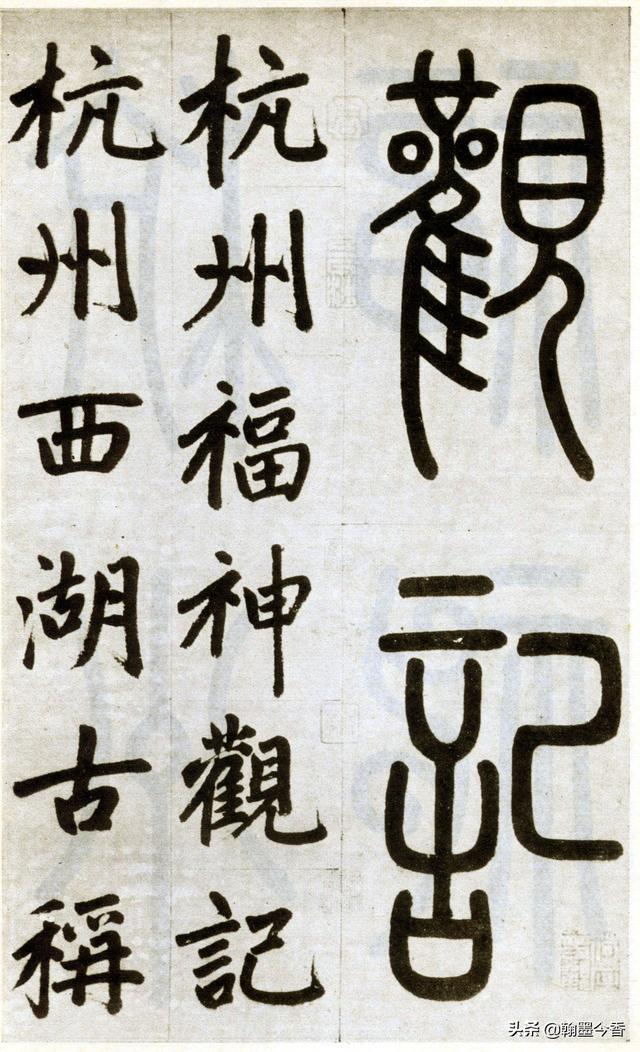 觀記
杭州福神觀記
杭州西湖古稱
头条 @翰墨今香